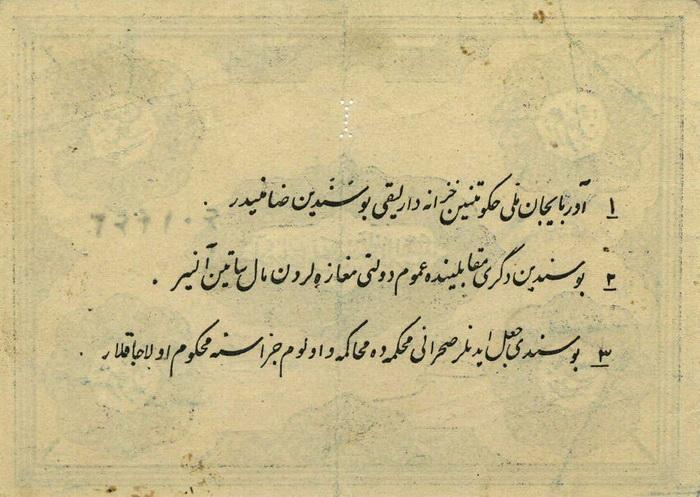 ۱ آذربایجان ملی حکومتینین خزانه داریلقی بو سندین ضامنیدر .
۲ بو سندین دگری مقابلینده عموم دولتی مغازه لردن مال ساتین آلنیر .
۳ بو سندی جعل ایدنلر صحرائی محکمه ده محاکمه و اولوم جزاسنه محکوم اولاجاقلار .